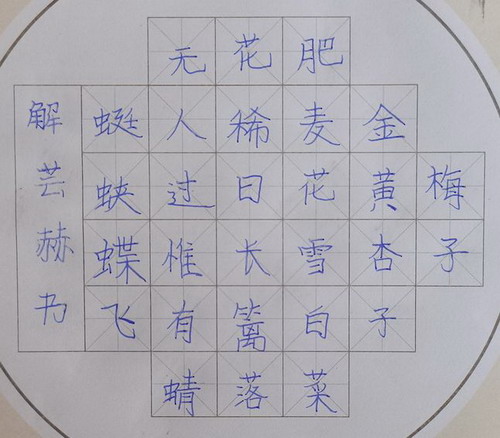 梅子
金黄杏子
肥麦花雪白菜
花稀日长篱落
无人过惟有蜻
蜓蛱蝶飞
解芸赫书